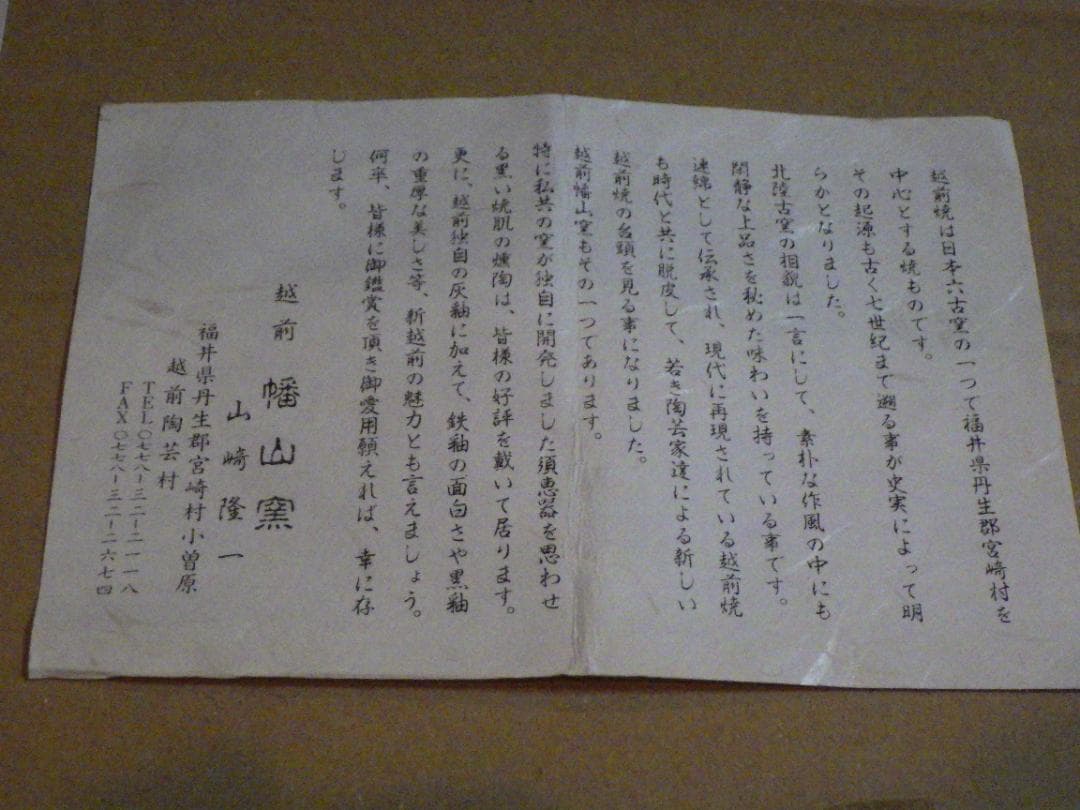 越前焼は日本六古窑の一つで福井県丹生郡宮崎村を
中心とする焼ものです。
その起源も古く七世紀まで遡る事が史実によって明
らかとなりました。
北陸古窑の相貌は一言にして、素朴な作風の中にも
閑静な上品さを秘めた味わいを持っている事です。
連綿として伝承され、現代に再現されている越前焼
も時代と共に脱皮して、若き陶芸家達による新しい
越前焼の台頭を見る事になりました。
越前幡山窑もその一つであります。
特に私共の窑が独自に開発しました須恵器を思わせ
る黒い焼肌の燻陶は、皆様の好評を戴いて居ります。
更に、越前独自の灰釉に加えて、鉄釉の面白さや黒釉
の重厚な美しさ等、新越前の魅力とも言えましょう。
何卒、皆様に御鑑賞を頂き御愛用願えれば、幸に存
じます。
越前 幡山窯
山﨑隆一
福井県丹生郡宮崎村小曽原
越前陶芸村
TEL〇七七八ー三二ー二一一八
FAX〇七七八ー三二ー二六七四